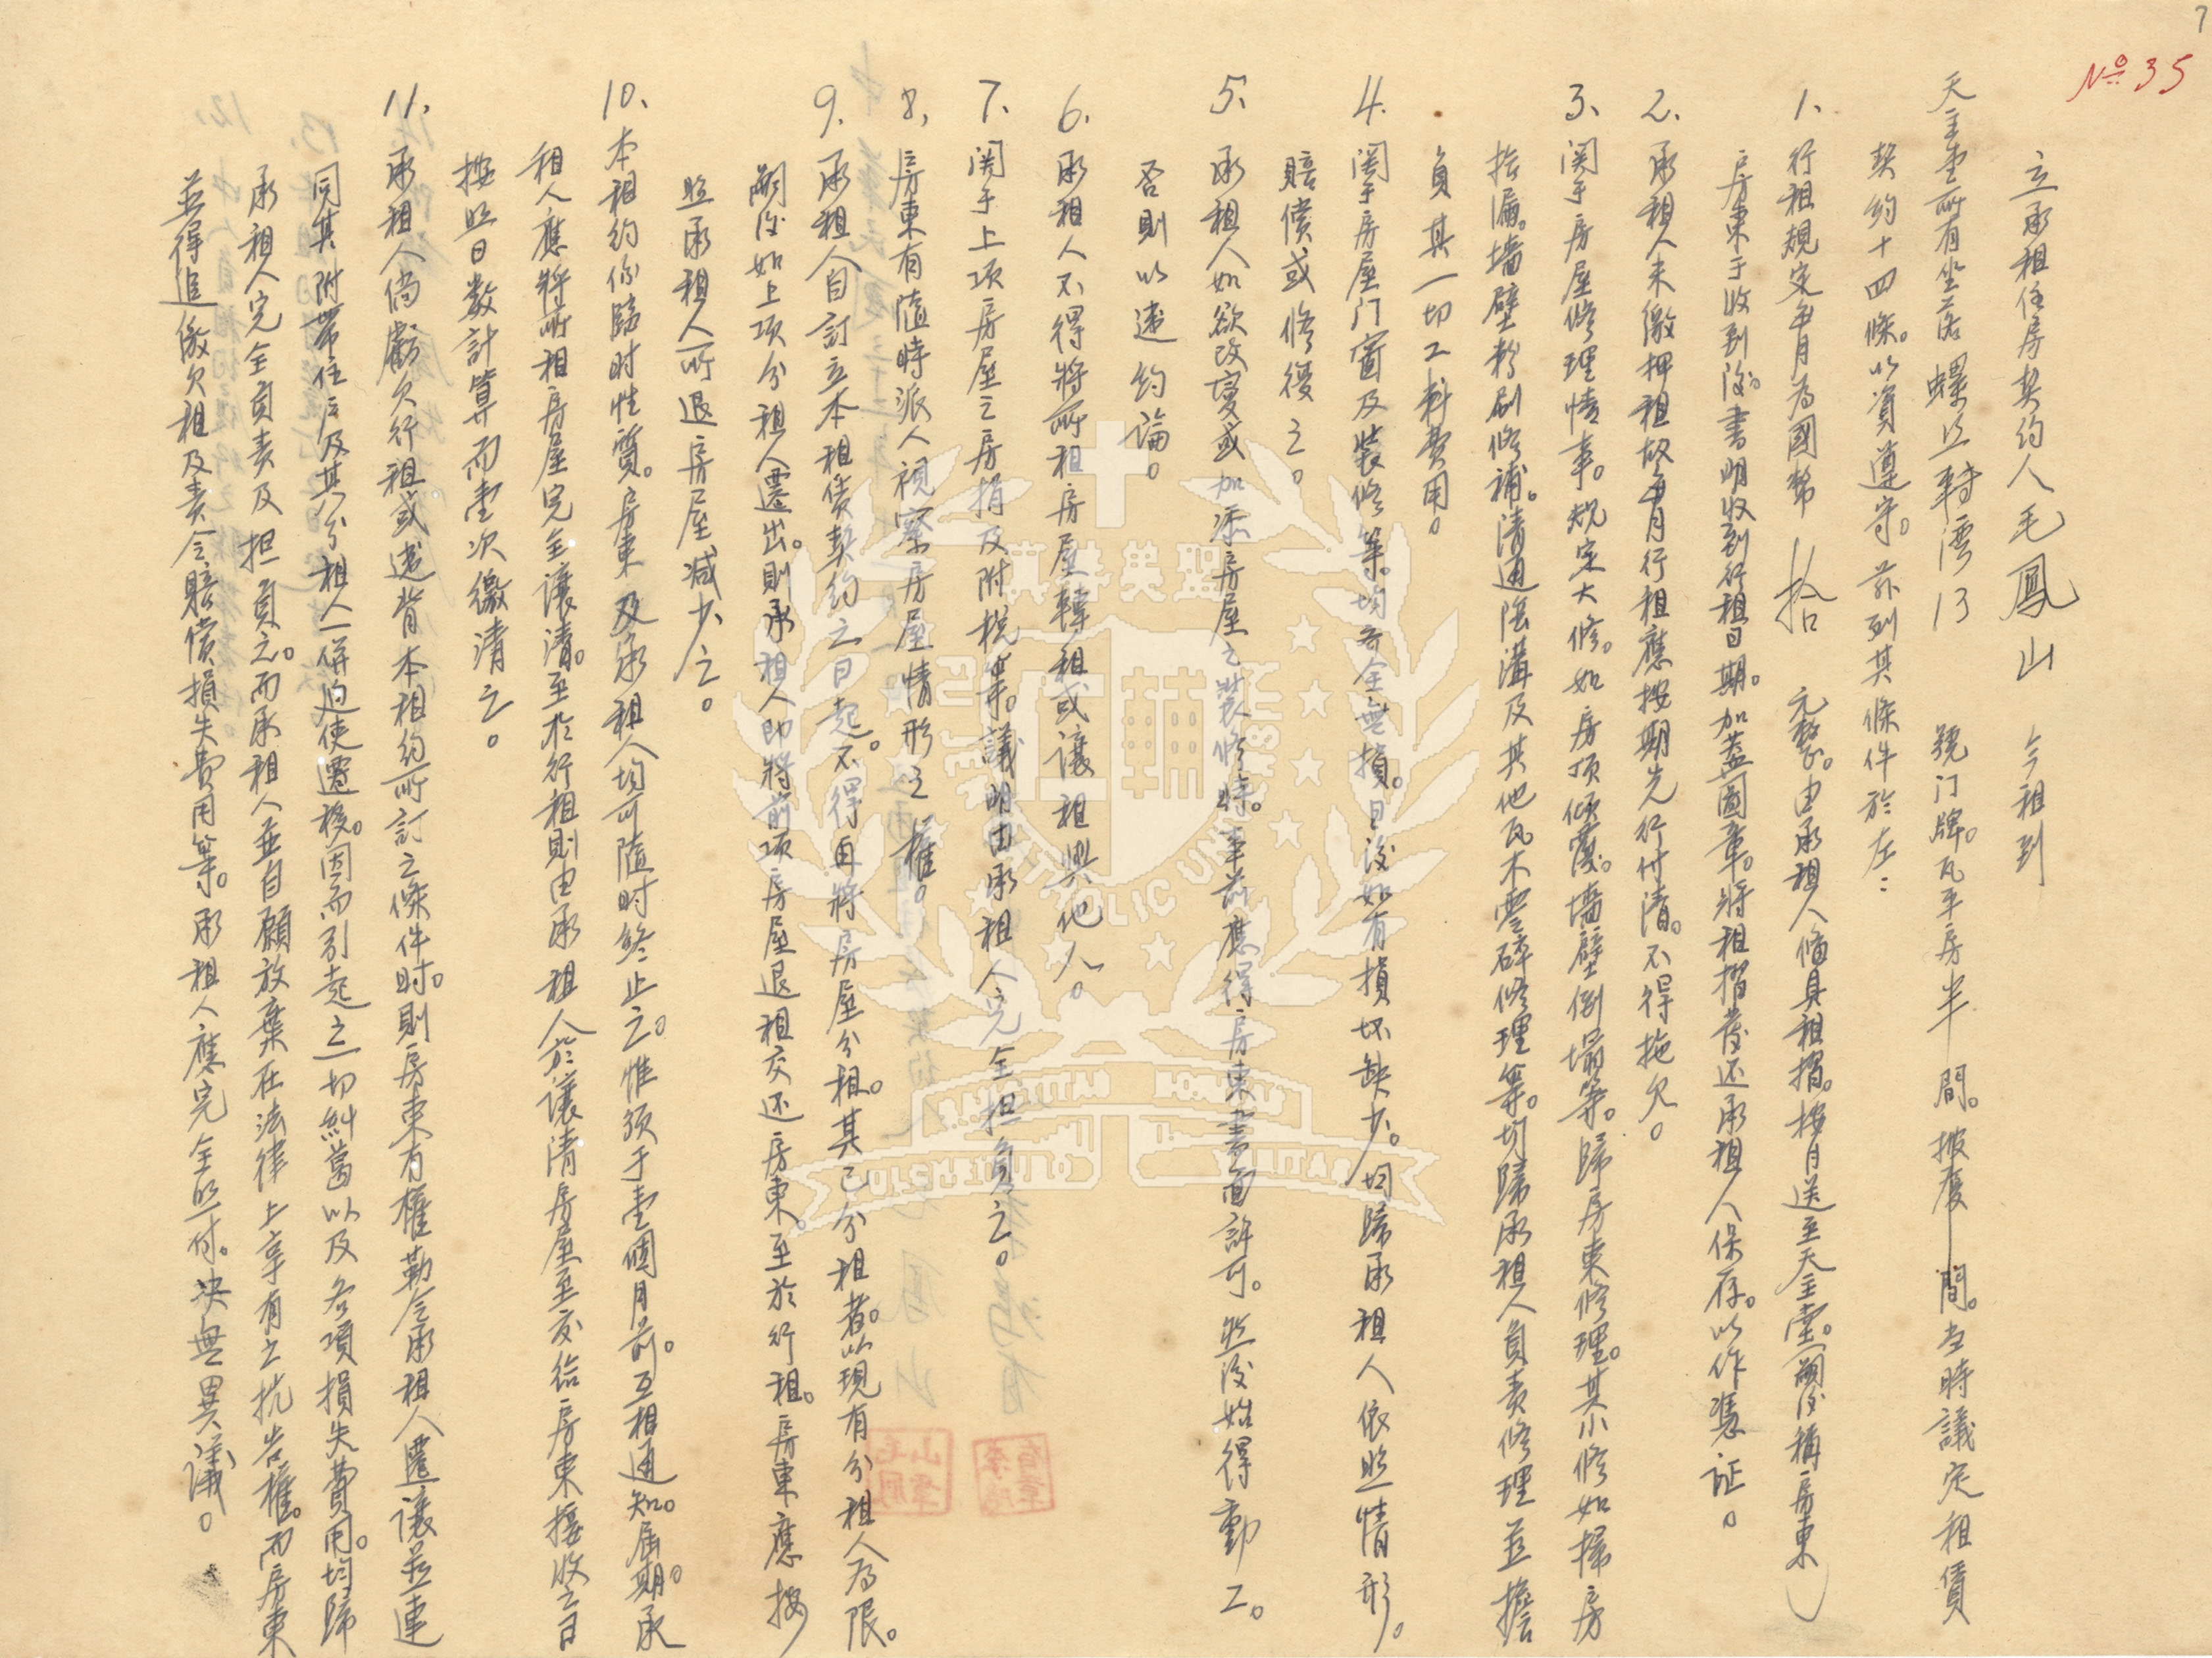 No 35
立承租住房契約人毛鳳山 今租到
天主堂所有坐落螺丝轉灣13 號门牌。瓦平房半 間。披廈 間。当時議定租賃
契約十四條。以資遵守。茲列其條件於左：
1. 行租規定每月為國幣 拾 元整。由承租人俻具租摺。按月送至天主堂。(嗣後稱房東)
房東于收到後。書明收到行租日期。加蓋圖章。將租摺發还承租人保存。以作憑证。
2. 承租人未繳押租故每月行租應按期先行付清。不得拖欠。
3. 関于房屋修理情事。規定大修。如房顶傾塲。墻壁倒塌等。歸房東修理。其小修如掃房
拾漏。墻壁粉刷修補。清通陰溝及其他瓦木零碎修理等。切歸承租人負责修理並擔
負其一切工料費用。
4. 関于房屋门窗及裝修等。均齐全無損。日後如有損坏缺少。均歸承租人依照情形。
賠償或修復之。
5. 承租人如欲改变或加添房屋之裝修時。事前應得房東書面許可。然後始得動工。
否則以違约論。
6. 承租人不得將所租房屋轉租或讓租與他人。
7. 関于上项房屋之房捐及附税等。議明由承租人完全担負之。
8. 房東有隨時派人視察房屋情形之權。
9. 承租人自訂立本租賃契约之日起。不得再將房屋分租。其已分租者。以現有分租人為限。
嗣後如上项分租人遷出。則承租人即將前项房屋退租交还房東。至於行租。房東應按
照承租人所退房屋減少之。
10. 本租约係臨时性質。房東及承租人均可隨时終止之。惟须于壹個月前。互相通知。届期。承
租人應將所租房屋完全讓清。至於行租則由承租人於讓清房屋至交给房東接收之日
按照日数計算而壹次繳清之。
11. 承租人倘虧欠行租或違背本租约所訂之條件时。則房東有權勒令承租人遷讓並連
同其附帶住户及其分租人一併迫使遷移。因而引起之一切糾葛以及各項損失費用。均歸
承租人完全負责及担負之。而承租人並自願放棄在法律上享有之抗告權。而房東
並得追繳欠租及责令賠償損失費用等。承租人應完全照付。决無異議。